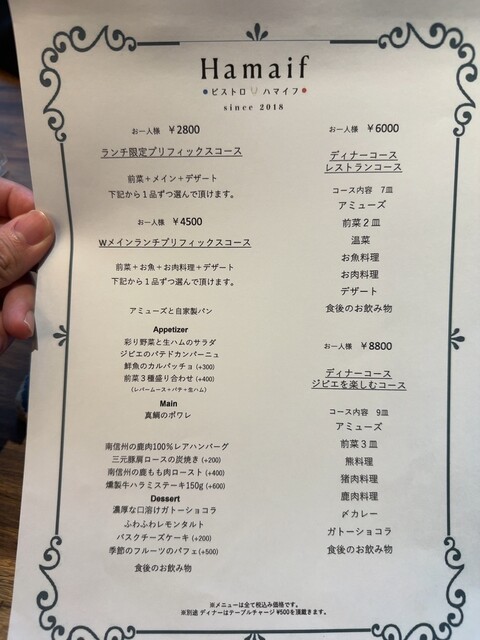 Hamaif
ビストロ ハマイフ
since 2018
お一人様 ¥2800
ランチ限定プリフィックスコース
前菜+メイン+デザート
下記から1品ずつ選んで頂けます。
お一人様 ¥4500
Wメインランチプリフィックスコース
前菜+お魚+お肉料理+デザート
下記から1品ずつ選んで頂けます。
アミューズと自家製パン
Appetizer
彩り野菜と生ハムのサラダ
ジビエのパテドカンパーニュ
鮮魚のカルパッチョ (+300)
前菜3種盛り合わせ (+400)
(レバームース+パテ+生ハム)
Main
真鯛のポワレ
南信州の鹿肉100%レアハンバーグ
三元豚肩ロースの炭焼き (+200)
南信州の鹿もも肉ロースト (+400)
燻製牛ハラミステーキ150g (+600)
Dessert
濃厚な口溶けガトーショコラ
ふわふわレモンタルト
バスクチーズケーキ (+200)
季節のフルーツのパフェ(+500)
食後のお飲み物
お一人様 ¥6000
ディナーコース
レストランコース
コース内容 7皿
アミューズ
前菜2皿
温菜
お魚料理
お肉料理
デザート
食後のお飲み物
お一人様 ¥8800
ディナーコース
ジビエを楽しむコース
コース内容 9皿
アミューズ
前菜3皿
熊料理
猪肉料理
鹿肉料理
〆カレー
ガトーショコラ
食後のお飲み物
※メニューは全て税込み価格です。
※別途 ディナーはテーブルチャージ ¥500を頂戴きます。